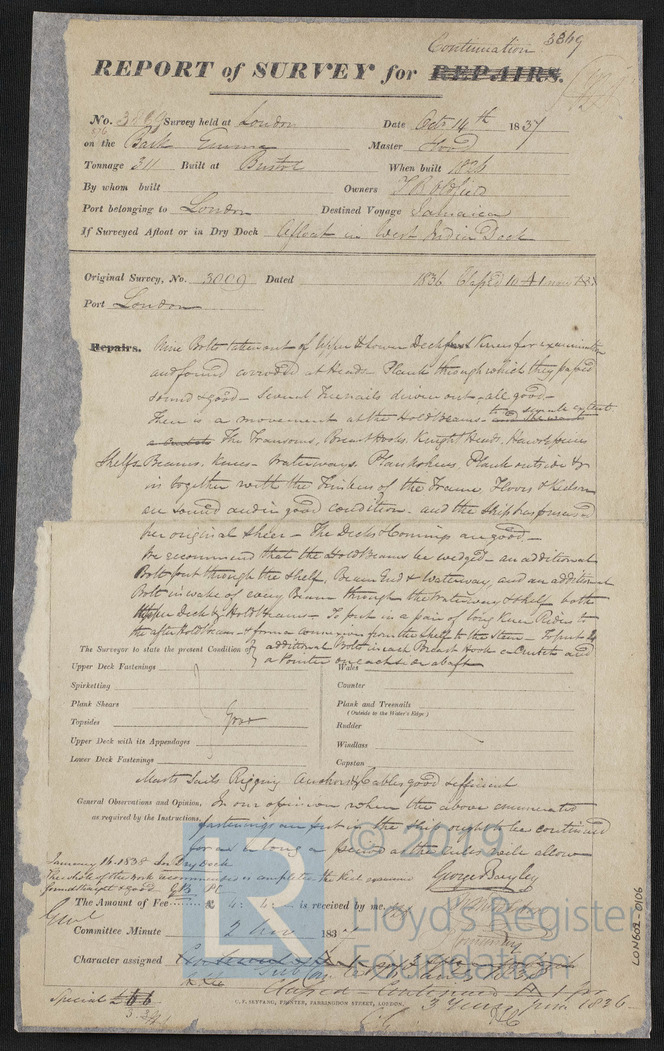 Continuation 3369
REPORT of SURVEY for REPAIRS.
No. 3369 Survey held at London Date Octr 14th 1837
on the Bark Emma Master Hood
Tonnage 311 Built at Bristol When built 1826
By whom built Owners
Port belonging to London Destined Voyage Jamaica
If Surveyed Afloat or in Dry Dock Afloat in West India Dock
Original Survey, No. 3009 Dated 1836 Class'd 10 A 1
Port London
Repairs. Nine Bolts taken out of Upper & Lower Deck Knees for examination
and found corroded at Heads - Planks through which they passed
sound & good - Several Treenails driven out - all good -
There is a movement at the Hold Beams -
The Transoms, Breast Hooks, Knight Heads, Hawse pieces
Shelfs Beams, Knees - Waterways, Plansheers, Plank outside &
in together with the Timbers of the Frame, Floors & Keelson
are sound and in good condition - and the Ship has preserved
her original Sheer - The Decks & Comings are good -
We recommend that the Hold Beams be wedged - an additional
Bolt put through the Shelf, Beam End & Waterway, and an additional
Bolt in wake of every Beam through the Waterway & Shelf both
Upper Deck & Hold Beams - To put in a pair of long Knee Riders to
the after Hold Beam - & form a connexion from the Shelf to the Stern - To put
additional Bolts in each Breast Hook & Crutch and
a Pointer on each side abaft
The Surveyor to state the present Condition of
Upper Deck Fastenings Wales
Spirketting Counter
Plank Shears Plank and Treenails
(Outside to the Water's Edge)
Topsides Good Rudder
Upper Deck with its Appendages Windlass
Lower Deck Fastenings Capstan
Masts Sails Rigging Anchors & Cables good & efficient
General Observations and Opinion, In our opinion when the above enumerated
as required by the Instructions, fastenings are put in the Ship ought to be continued
for as long a period as the rules will allow
January 16. 1838 In Dry Dock
The whole of the work recommended is completed the Keel examined
found straight & good GB
George Bayley
The Amount of Fee £ 4: 4: is received by me,
Committee Minute 2 Nov 1837
Character assigned
Special
3 Years from 1836
C. F. SEYFANG, PRINTER, FARRINGDON STREET, LONDON.
LON602-0106
© 2019
LR
Lloyd's Register
Foundation